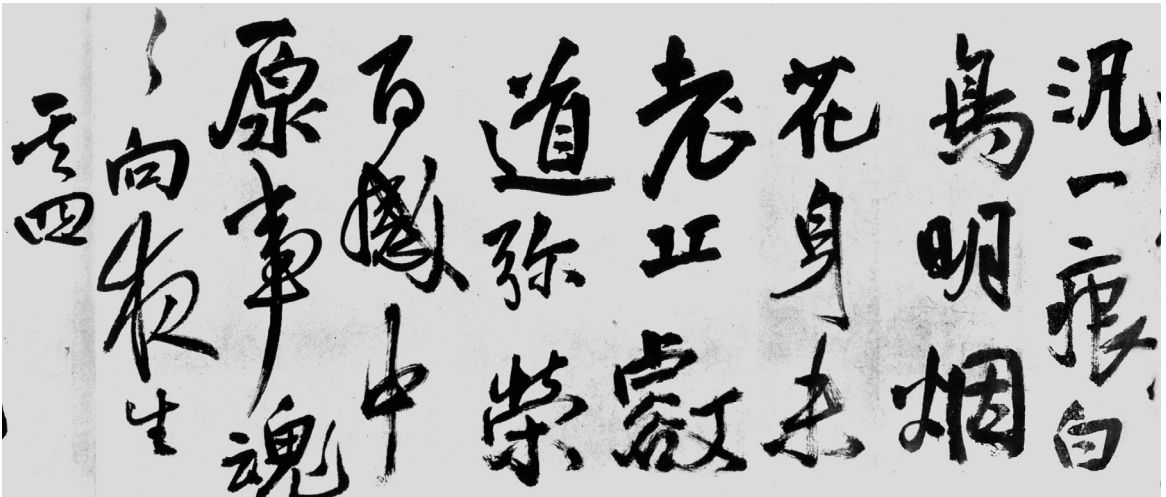 汎一痕白
鳥明烟
花身未
老丘壑
道弥榮
百感中
原事魂
〻向夜生
其四